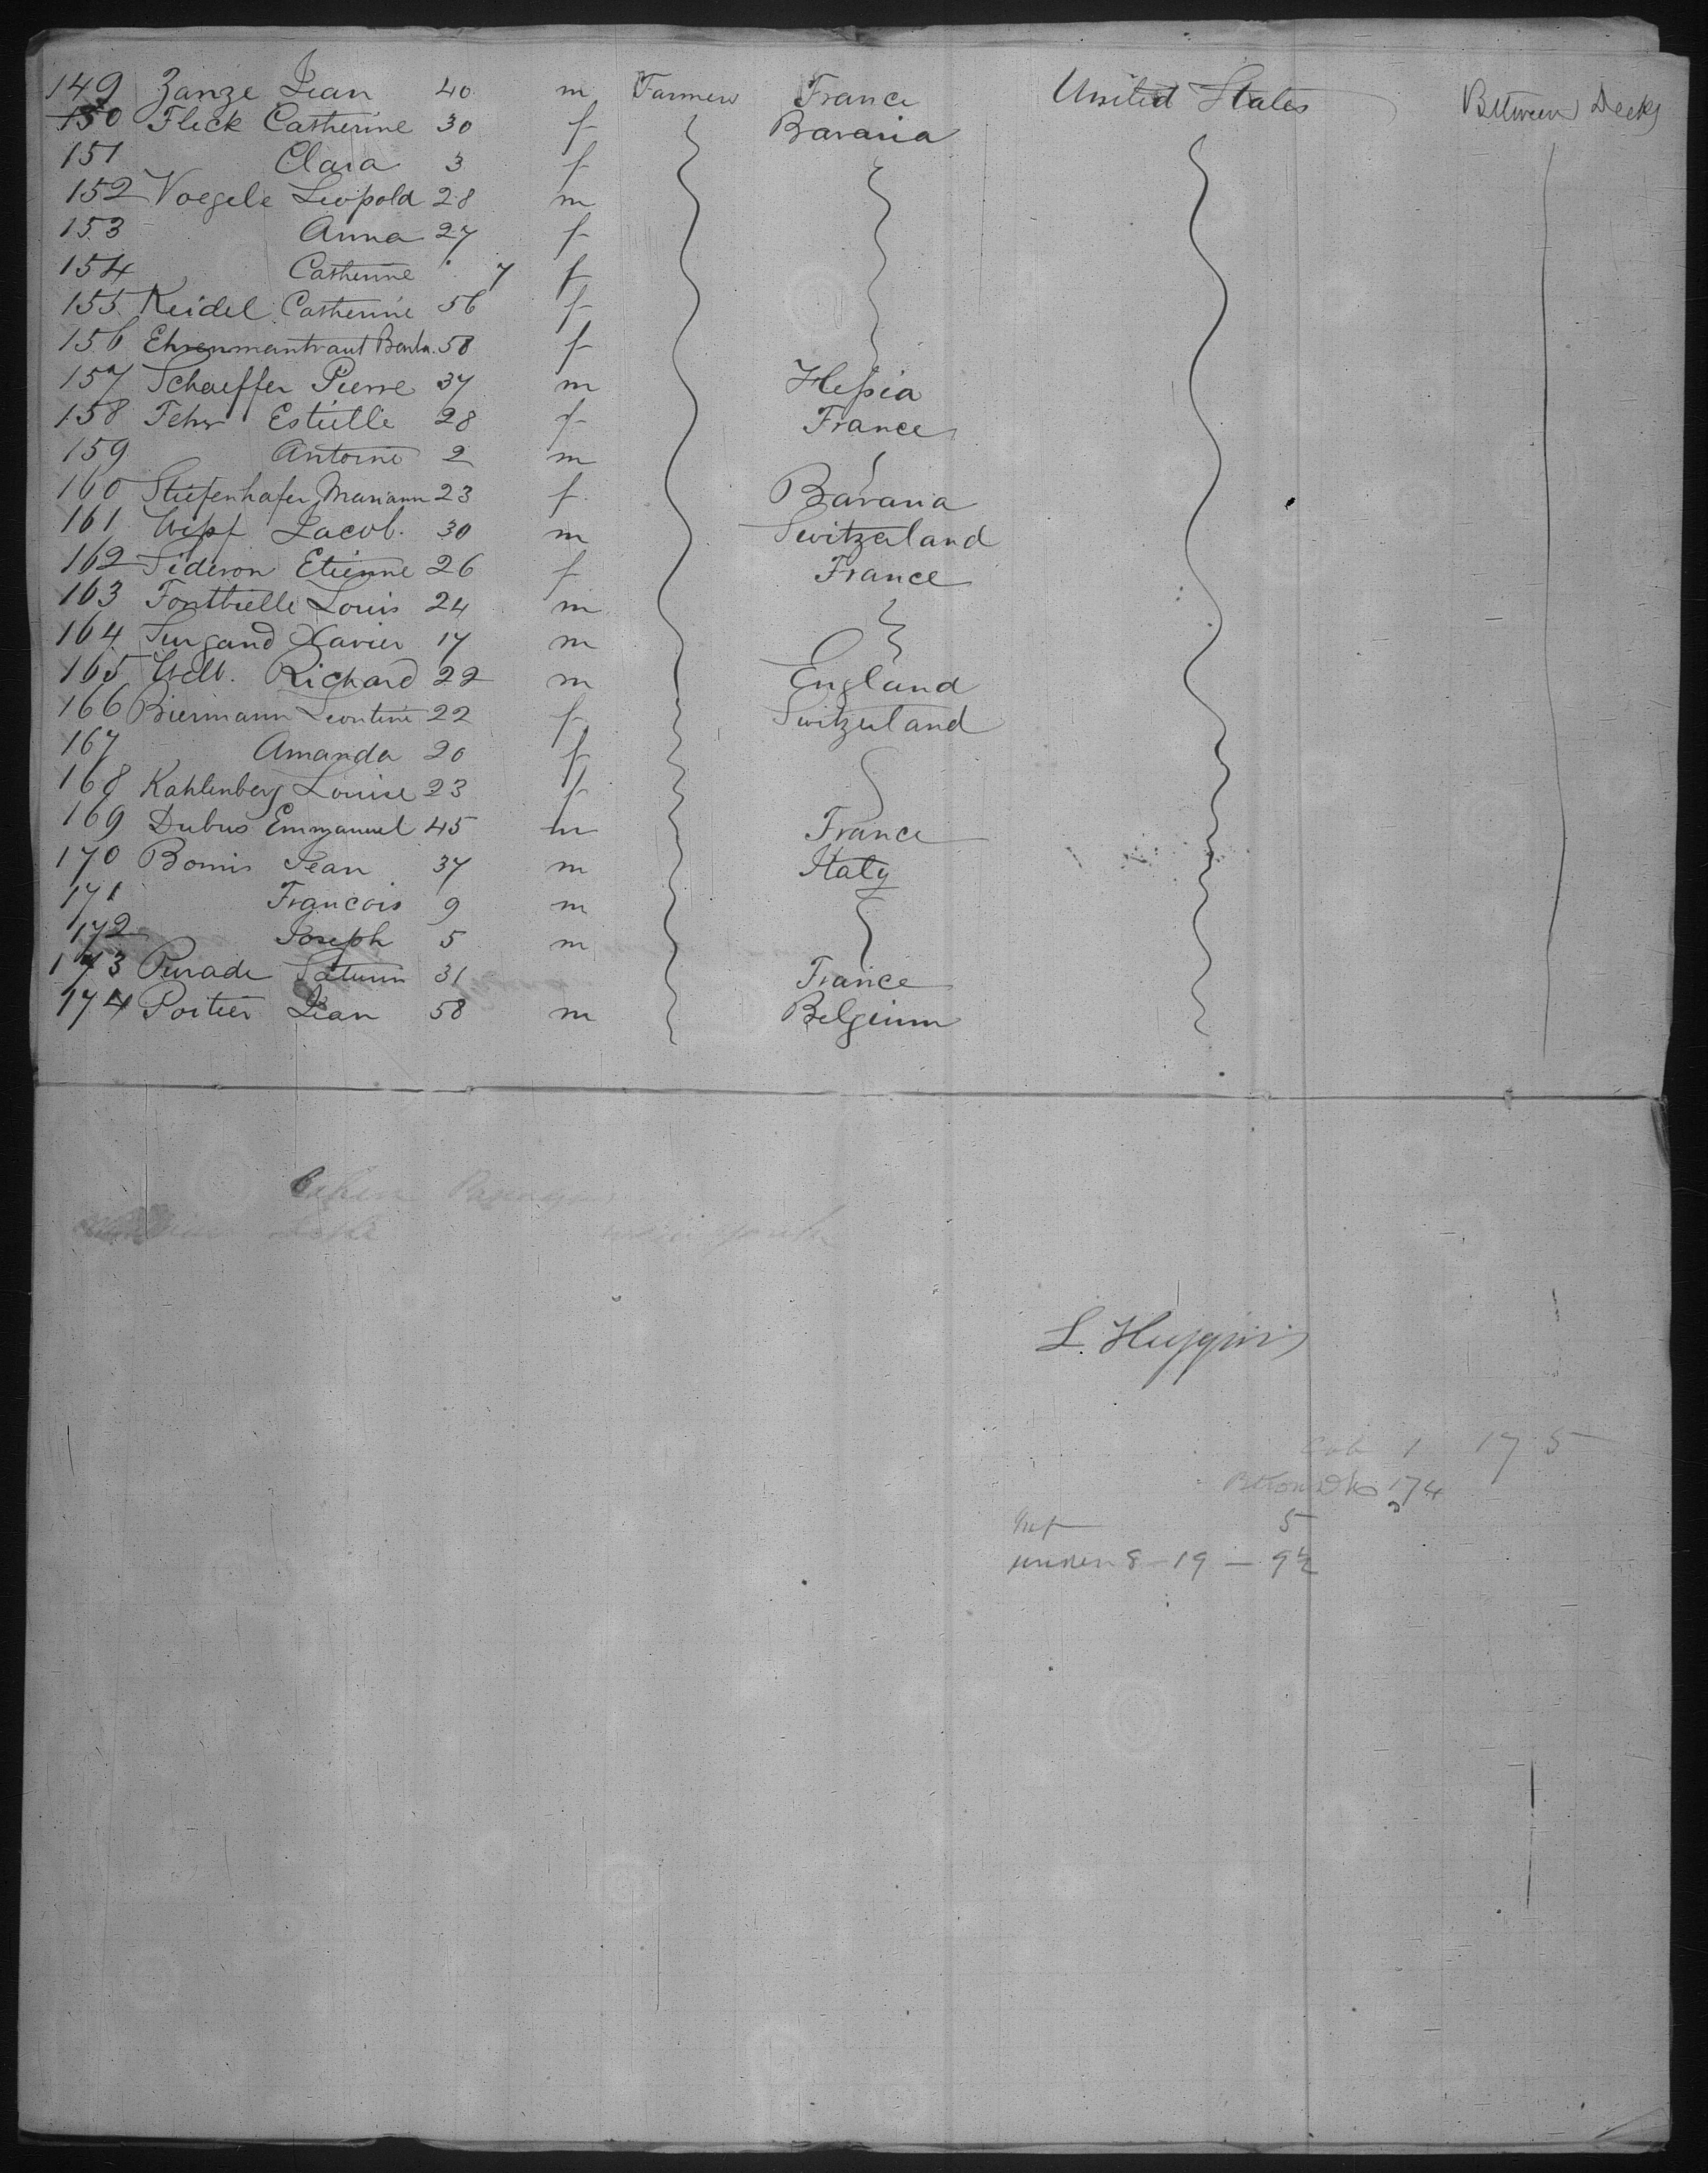 149 Zanze Jean 40 m Farmer France United States Between Decks
150 Fleck Catherine 30 f Bavaria
151 Clara 3 f
152 Voegele Leopold 28 m
153 Anna 27 f
154 Catherine " 7 f
155 Keidel Catherine 56 f
156 Ehrenmantraut Barba. 58 f
157 Schaeffer Pierre 37 m Hessia
158 Fehr 28 f France
159 Antoine 2 m
160 Stiefenhafer Mariann 23 f Bavaria
161 Wipf Jacob. 30 m Switzerland
162 Sideron Etienne 26 f France
163 Louis 24 m
164 Xavier 17 m
165 Richard 22 m England
166 Biermann Leontine 22 f Switzerland
167 Amanda 20 f
168 Kahlenberg Louise 23 f
169 Dubus Emmanuel 45 m France
170 Jean 37 m Italy
171 Francois 9 m
172 Joseph 5 m
173 Saturnin 31 France
174 Poitier Jean 58 m Belgium
L. Huggins
Cab 1 175
174
Inf 5
under 8 - 19 - 9½